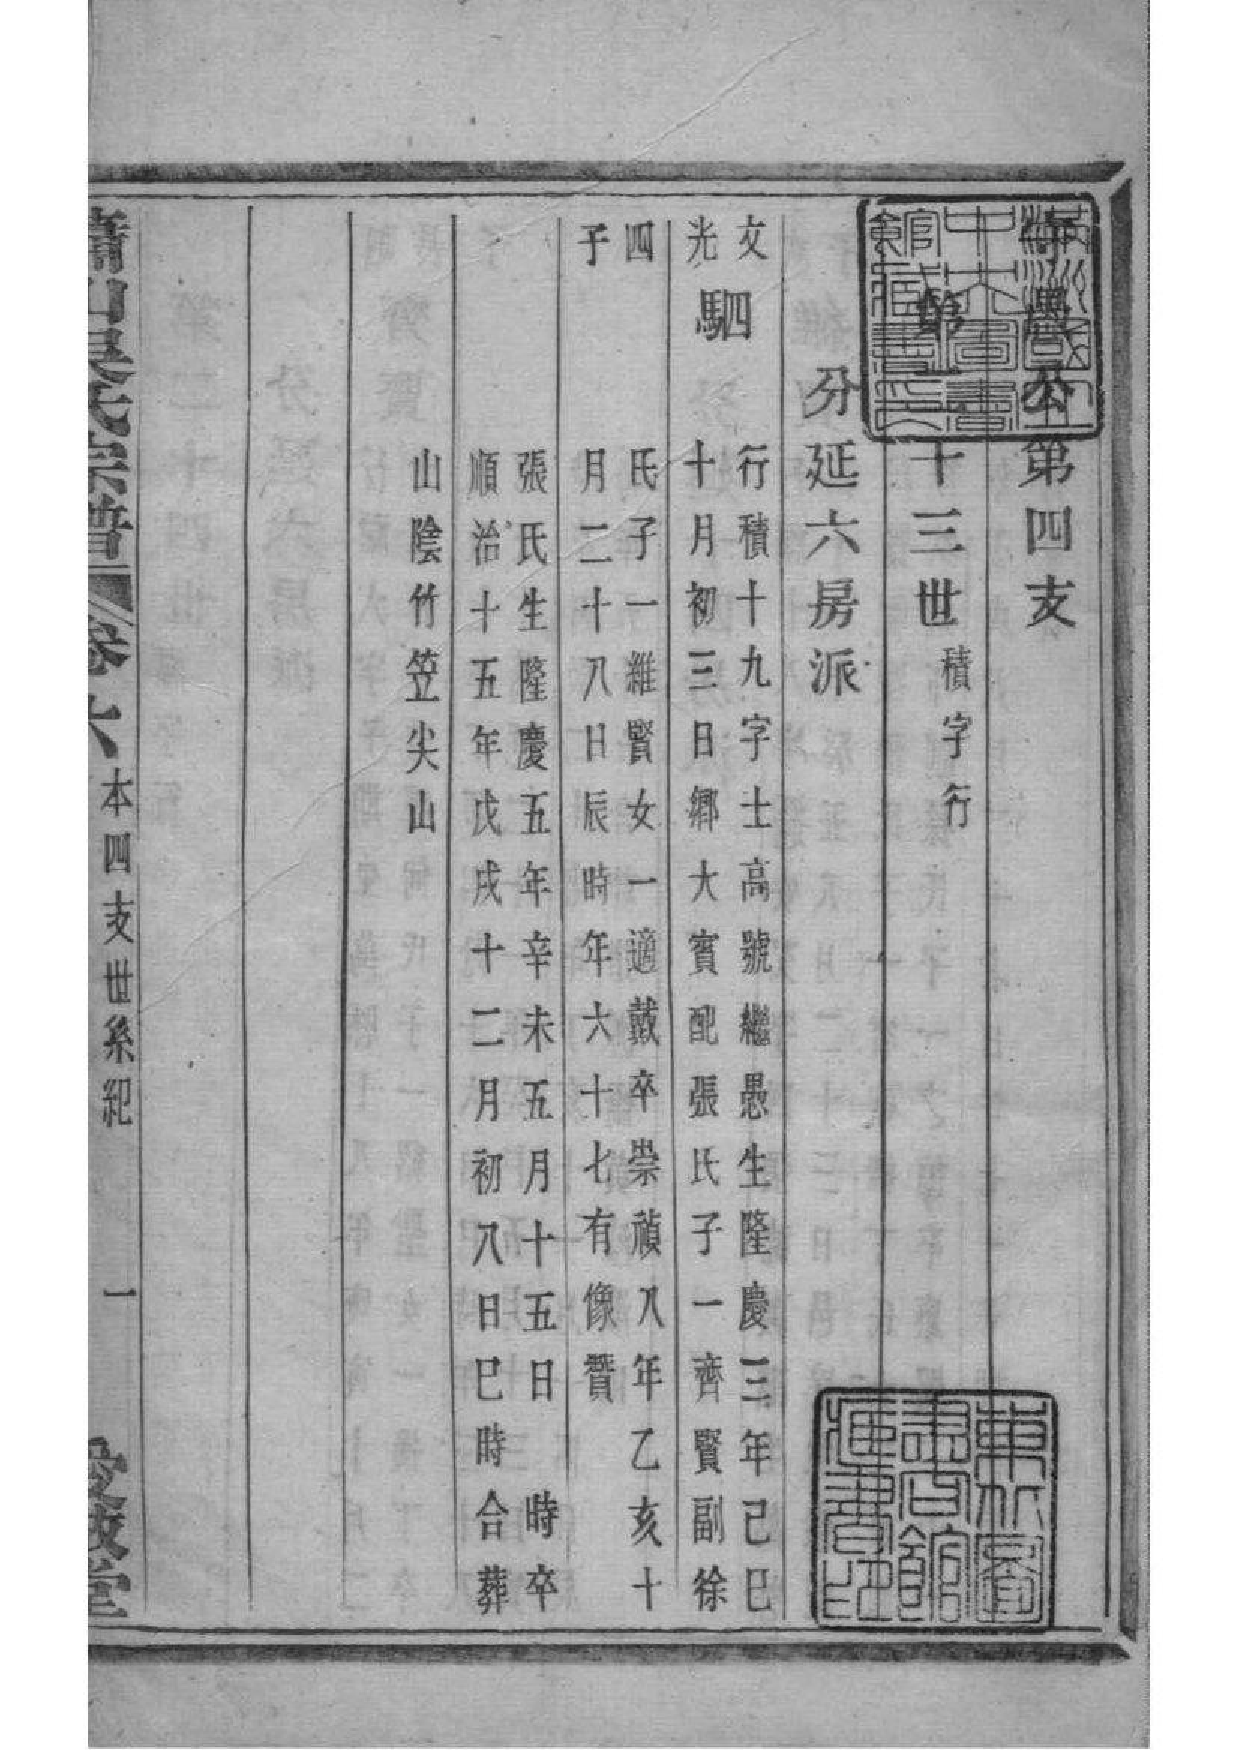 愚公第四支
第二十三世 積字行
分延六房派
文 行積十九字士高號繼愚生隆慶三年己巳
光 駟 十月初三日鄉大賓配張氏子一齊賢副徐
四 氏子一維賢女一適戴卒崇禎八年乙亥十
子 月二十八日辰時年六十七有像贊
張氏生隆慶五年辛未五月十五日 時卒
順治十五年戊戌十二月初八日巳時合葬
山陰竹笠尖山
蕭山吳氏宗譜 卷六 本四支世系紀 一 愛敬堂
東北圖書館藏書印